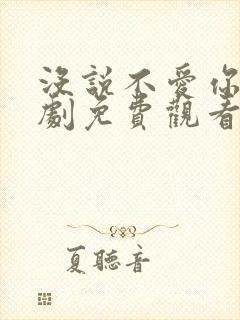 沒說不愛你
劇免費觀看
夏聽音